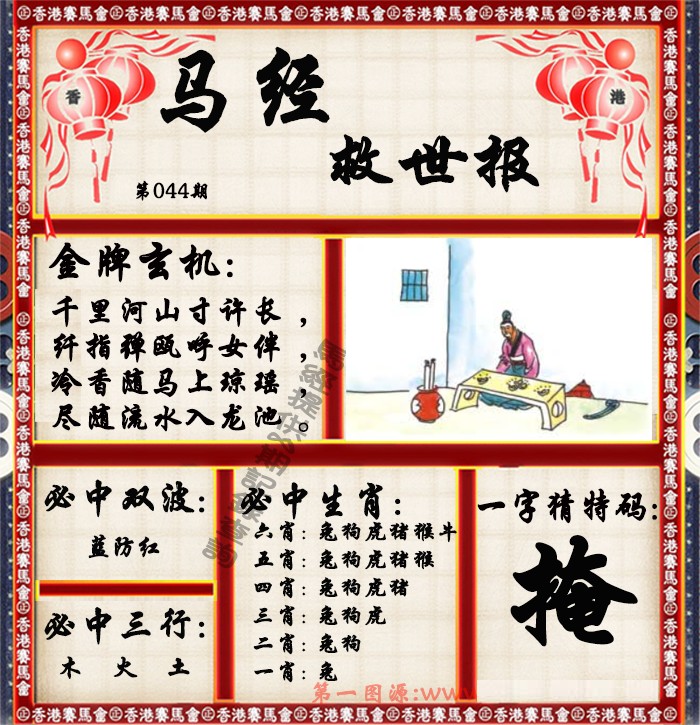 香港賽馬會
香 港
马经
救世报
第044期
金牌玄机:
千里河山寸许长，
纤指弹瓯呼女伴，
冷香随马上琼瑶，
尽随流水入龙池。
必中双波:
蓝防红
必中三行:
木 火 土
必中生肖:
六肖: 兔狗虎猪猴牛
五肖: 兔狗虎猪猴
四肖: 兔狗虎猪
三肖: 兔狗虎
二肖: 兔狗
一肖: 兔
一字猜特码:
掩
第一图源:www